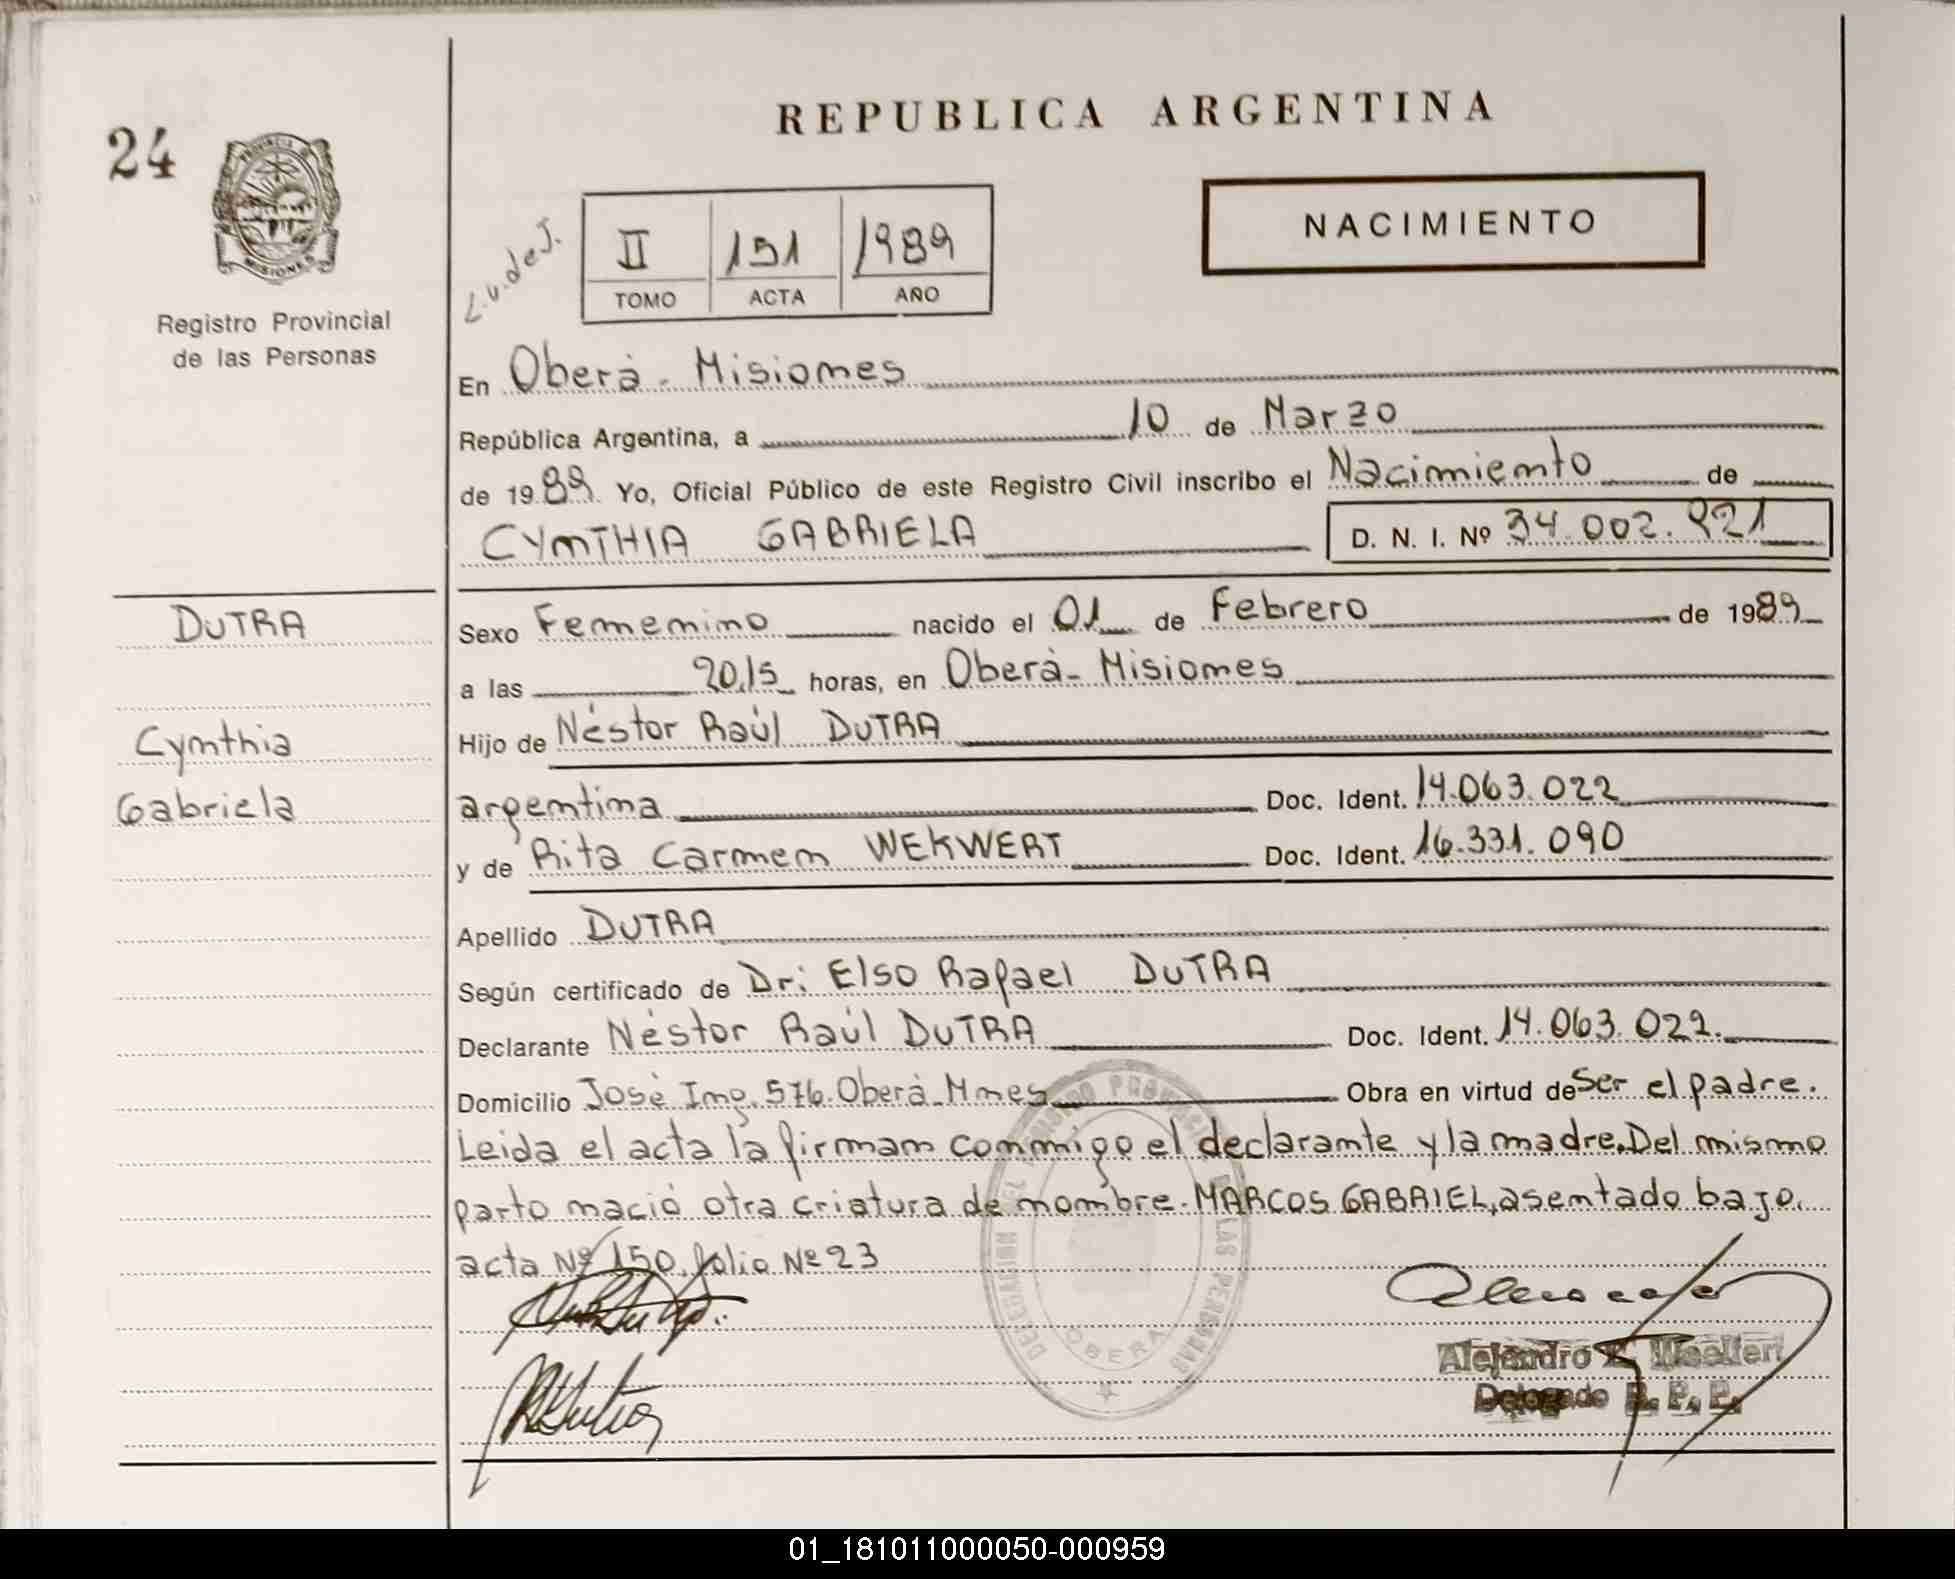 24
REPUBLICA ARGENTINA
NACIMIENTO
PROVINCIA DE
MISIONES
Registro Provincial
de las Personas
L.u.de J.
II 151 1989
TOMO ACTA AÑO
En Oberá - Misiones
República Argentina, a 10 de Marzo
de 1989. Yo, Oficial Público de este Registro Civil inscribo el Nacimiento de
CYNTHIA GABRIELA D. N. I. Nº 34.002.921
DUTRA
Sexo Femenino nacido el 01 de Febrero de 1989
a las 20,15 horas, en Oberá - Misiones
Cynthia
Hijo de Néstor Raúl DUTRA
Gabriela
argentina Doc. Ident. 14.063.022
y de Rita Carmen WEKWERT Doc. Ident. 16.331.090
Apellido DUTRA
Según certificado de Dr: Elso Rafael DUTRA
Declarante Néstor Raúl DUTRA Doc. Ident. 14.063.022.
Domicilio José Ing. 576. Oberá - Mnes Obra en virtud de Ser el padre.
Leida el acta la firman conmigo el declarante y la madre. Del mismo
parto nació otra criatura de nombre. MARCOS GABRIEL, asentado bajo.
acta Nº 150. folio Nº 23
DELEGACION DEL REGISTRO PROVINCIAL DE LAS PERSONAS
OBERA
Alejandro
Delegado R. P. P.
01_181011000050-000959